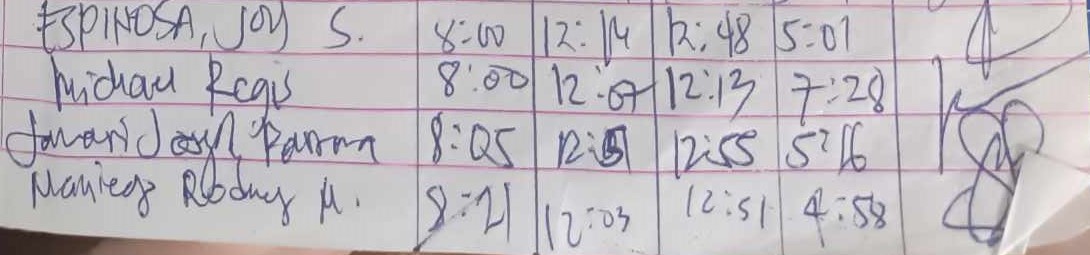 ESPINOSA, JOY S. 8:00 12:14 12:48 5:01
Michael Regis 8:00 12:07 12:13 7:28
8:05 12:55 5:16
Rodney M. 8:21 12:03 12:51 4:58